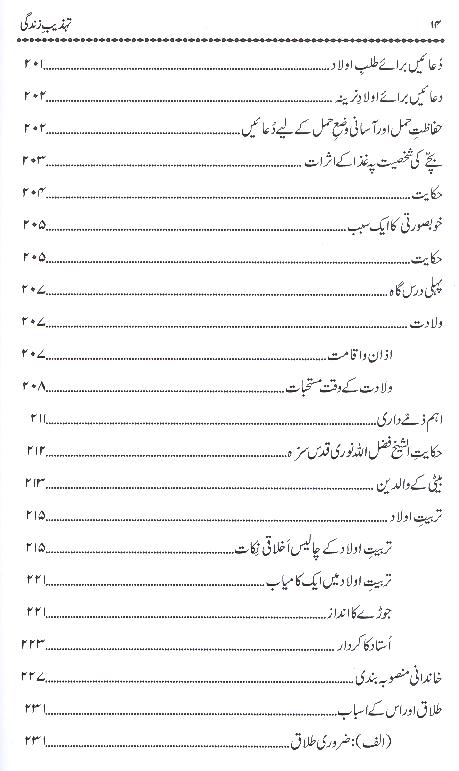 ۱۴ تہذیبِ زندگی
دُعائیں برائے طلبِ اولاد ۲۰۱
دعائیں برائے اولادِ نرینہ ۲۰۲
حفاظتِ حمل اور آسانی وضعِ حمل کے لیے دُعائیں ۲۰۲
بچّے کی شخصیت پہ غذا کے اثرات ۲۰۳
حکایت ۲۰۴
خوبصورتی کا ایک سبب ۲۰۵
حکایت ۲۰۵
پہلی درس گاہ ۲۰۷
ولادت ۲۰۷
اذان و اقامت ۲۰۷
ولادت کے وقت مستحبات ۲۰۸
اہم ذمّے داری ۲۱۱
حکایتِ الشیخ فضل اللہ نوری قدس سرہ ۲۱۲
بیٹی کے والدین ۲۱۳
تربیتِ اولاد ۲۱۵
تربیتِ اولاد کے چالیس اَخلاقی نِکات ۲۱۵
تربیتِ اولاد میں ایک کامیاب ۲۲۱
جوڑے کا انداز ۲۲۱
اُستاد کا کردار ۲۲۳
خاندانی منصوبہ بندی ۲۲۷
طلاق اور اس کے اسباب ۲۳۱
(الف): ضروری طلاق ۲۳۱